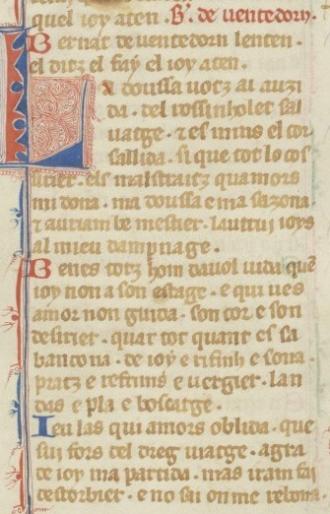 quel ioy aten. B. de uentedorn.
Bernat de uentedorn lenten.
el ditz el fay el ioy aten.
La doussa uotz ai auzi
da. del rossinholet sal
uatge. ⁊ es mins el cor
sallida. si que tot lo cos
sirier. els malstraitz quamors
mi dona. ma doussa e ma sazona
⁊ auriam be mestier. lautrui ioys
al mieu dampnage.
Benes totz hom dauol uida que
ioy non a son estage. e qui ues
amor non guida. son cor e son
desirier. quar tot quant es sa
bandona. de ioy e refinh e sona.
pratz e refrims e uergier. lan
das e pla e boscatge.
Ieu las qui amors oblida. que
sui fors del dreg uiatge. agra
de ioy ma partida. mas iram fai
destorbier. e no sai on me repona